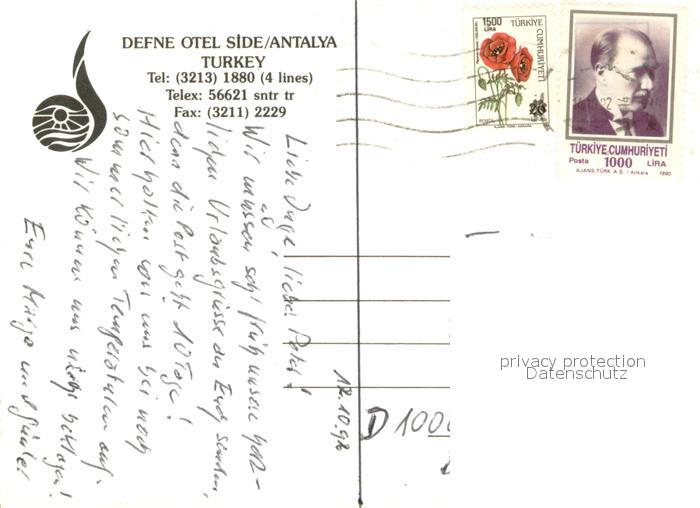 DEFNE OTEL SİDE/ANTALYA
TURKEY
Tel: (3213) 1880 (4 lines)
Telex: 56621 sntr tr
Fax: (3211) 2229
1500
LİRA
TÜRKİYE CUMHURİYETİ
20
POSTA
TÜRKİYE CUMHURİYETİ
Posta 1000 LİRA
AJANS-TÜRK A.Ş./Ankara 1990
Liebe Inge! lieber Peter!
Wir müssen schon früh unsere herz-
lichen Urlaubsgrüsse an Euch senden,
denn die Post geht 10 Tage!
Hier halten wir uns bei noch
sommerlichen Temperaturen auf.
Wir können uns nicht beklagen!
Eure Marga und Günter
12.10.92
D 100
privacy protection
Datenschutz